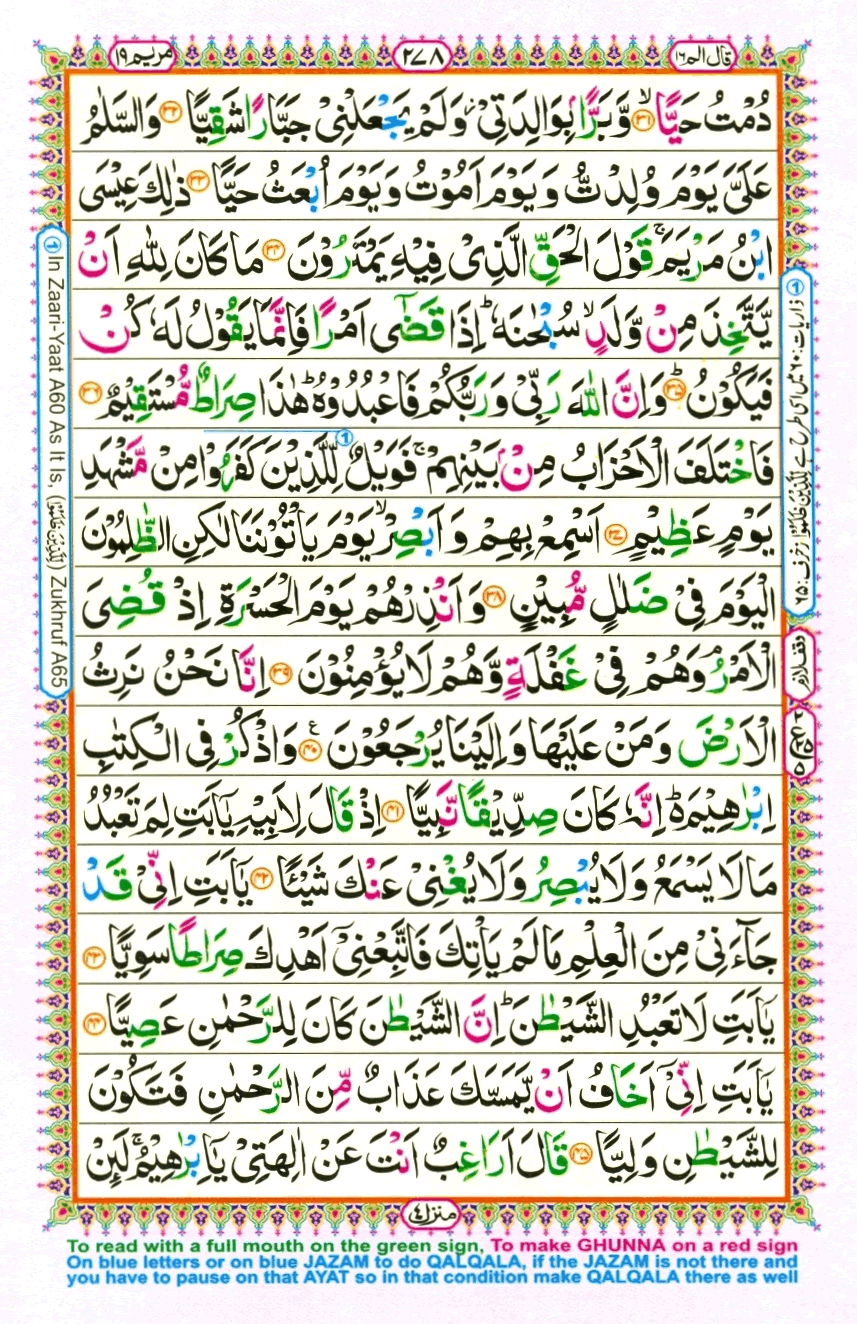 قال الم ١٦
٢٧٨
مريم ١٩
دُمْتُ حَيًّا ۙ‏﴿۳۱﴾ وَّبَرًّۢا بِوَالِدَتِىْ وَلَمْ يَجْعَلْنِىْ جَبَّارًا شَقِيًّا ﴿۳۲﴾ وَالسَّلٰمُ
عَلَىَّ يَوْمَ وُلِدْتُّ وَيَوْمَ اَمُوْتُ وَيَوْمَ اُبْعَثُ حَيًّا ﴿۳۳﴾ ذٰلِكَ عِيْسَى
ابْنُ مَرْيَمَ ۚ قَوْلَ الْحَقِّ الَّذِىْ فِيْهِ يَمْتَرُوْنَ ﴿۳۴﴾ مَا كَانَ لِلّٰهِ اَنْ
يَّتَّخِذَ مِنْ وَّلَدٍ ۙ سُبْحٰنَهٗ ؕ اِذَا قَضٰٓى اَمْرًا فَاِنَّمَا يَقُوْلُ لَهٗ كُنْ
فَيَكُوْنُ ؕ ﴿۳۵﴾ وَاِنَّ اللّٰهَ رَبِّىْ وَرَبُّكُمْ فَاعْبُدُوْهُ ؕ هٰذَا صِرَاطٌ مُّسْتَقِيْمٌ ﴿۳۶﴾
فَاخْتَلَفَ الْاَحْزَابُ مِنْۢ بَيْنِهِمْ ۚ فَوَيْلٌ لِّلَّذِيْنَ كَفَرُوْا ① مِنْ مَّشْهَدِ
يَوْمٍ عَظِيْمٍ ﴿۳۷﴾ اَسْمِعْ بِهِمْ وَاَبْصِرْ ۙ يَوْمَ يَاْتُوْنَنَا لٰكِنِ الظّٰلِمُوْنَ
الْيَوْمَ فِىْ ضَلٰلٍ مُّبِيْنٍ ﴿۳۸﴾ وَاَنْذِرْهُمْ يَوْمَ الْحَسْرَةِ اِذْ قُضِىَ
الْاَمْرُ ۘ وَهُمْ فِىْ غَفْلَةٍ وَّهُمْ لَا يُؤْمِنُوْنَ ﴿۳۹﴾ اِنَّا نَحْنُ نَرِثُ
الْاَرْضَ وَمَنْ عَلَيْهَا وَاِلَيْنَا يُرْجَعُوْنَ ﴿۴۰﴾ ع وَاذْكُرْ فِى الْكِتٰبِ
اِبْرٰهِيْمَ ؕ اِنَّهٗ كَانَ صِدِّيْقًا نَّبِيًّا ﴿۴۱﴾ اِذْ قَالَ لِاَبِيْهِ يٰۤاَبَتِ لِمَ تَعْبُدُ
مَا لَا يَسْمَعُ وَلَا يُبْصِرُ وَلَا يُغْنِىْ عَنْكَ شَيْـًٔا ﴿۴۲﴾ يٰۤاَبَتِ اِنِّىْ قَدْ
جَآءَنِىْ مِنَ الْعِلْمِ مَا لَمْ يَاْتِكَ فَاتَّبِعْنِىْۤ اَهْدِكَ صِرَاطًا سَوِيًّا ﴿۴۳﴾
يٰۤاَبَتِ لَا تَعْبُدِ الشَّيْطٰنَ ؕ اِنَّ الشَّيْطٰنَ كَانَ لِلرَّحْمٰنِ عَصِيًّا ﴿۴۴﴾
يٰۤاَبَتِ اِنِّىْۤ اَخَافُ اَنْ يَّمَسَّكَ عَذَابٌ مِّنَ الرَّحْمٰنِ فَتَكُوْنَ
لِلشَّيْطٰنِ وَلِيًّا ﴿۴۵﴾ قَالَ اَرَاغِبٌ اَنْتَ عَنْ اٰلِهَتِىْ يٰۤاِبْرٰهِيْمُ ۚ لَئِنْ
① ذاريات: ٦٠ میں اسی طرح ہے لِلَّذِيْنَ ظَلَمُوْا زخرف: ٦٥
وقف لازم
① In Zaari-Yaat A60 As It Is, (لِلَّذِيْنَ ظَلَمُوْا) Zukhruf A65
منزل ٤
To read with a full mouth on the green sign, To make GHUNNA on a red sign
On blue letters or on blue JAZAM to do QALQALA, if the JAZAM is not there and
you have to pause on that AYAT so in that condition make QALQALA there as well